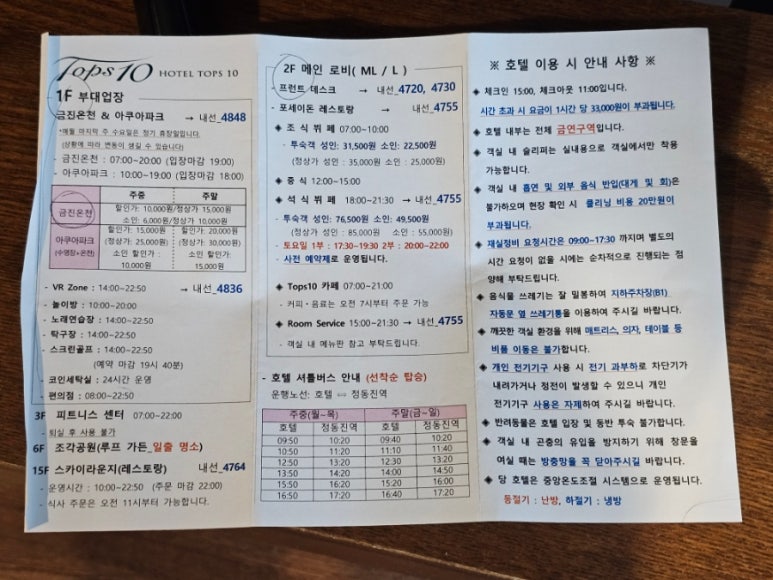 Tops10 HOTEL TOPS 10
1F 부대업장
금진온천 & 아쿠아파크 → 내선_4848
*매월 마지막 주 수요일은 정기 휴장일입니다.
(상황에 따라 변동이 생길 수 있습니다)
- 금진온천 : 07:00~20:00 (입장마감 19:00)
- 아쿠아파크 : 10:00~19:00 (입장마감 18:00)
주중 주말
금진온천 할인가: 10,000원/정상가 15,000원
소인: 6,000원/정상가 10,000원
아쿠아파크 (수영장+온천) 할인가: 15,000원 할인가: 20,000원
(정상가: 25,000원) (정상가: 30,000원)
소인 할인가: 소인 할인가:
10,000원 15,000원
- VR Zone : 14:00~22:50 → 내선_4836
- 놀이방 : 10:00~20:00
- 노래연습장 : 14:00~22:50
- 탁구장 : 14:00~22:50
- 스크린골프 : 14:00~22:50
(예약 마감 19시 40분)
- 코인세탁실 : 24시간 운영
- 편의점 : 08:00~22:50
3F 피트니스 센터 07:00~22:00
- 퇴실 후 사용 불가
6F 조각공원(루프 가든_일출 명소)
15F 스카이라운지(레스토랑) 내선_4764
- 운영시간 : 10:00~22:50 (주문 마감 22:00)
- 식사 주문은 오전 11시부터 가능합니다.
2F 메인 로비( ML / L )
- 프런트 데스크 → 내선_4720, 4730
- 포세이돈 레스토랑 → 내선_4755
◈ 조식 뷔페 07:00~10:00
- 투숙객 성인: 31,500원 소인: 22,500원
(정상가 성인 : 35,000원 소인 : 25,000원)
◈ 중식 12:00~15:00
◈ 석식 뷔페 18:00~21:30 → 내선_4755
- 투숙객 성인: 76,500원 소인: 49,500원
(정상가 성인 : 85,000원 소인 : 55,000원)
- 토요일 1부 : 17:30~19:30 2부 : 20:00~22:00
- 사전 예약제로 운영됩니다.
◈ Tops10 카페 07:00~21:00
- 커피・음료는 오전 7시부터 주문 가능
◈ Room Service 15:00~21:30 → 내선_4755
- 객실 내 메뉴판 참고 부탁드립니다.
- 호텔 셔틀버스 안내 (선착순 탑승)
운행노선: 호텔 ⇔ 정동진역
주중(월~목) 주말(금~일)
호텔 정동진역 호텔 정동진역
09:50 10:20 09:40 10:20
10:50 11:20 11:10 11:40
12:50 13:20 12:30 13:20
13:50 14:20 14:00 14:50
15:50 16:20 15:20 16:00
16:50 17:20 16:40 17:20
※ 호텔 이용 시 안내 사항 ※
◈ 체크인 15:00, 체크아웃 11:00입니다.
시간 초과 시 요금이 1시간 당 33,000원이 부과됩니다.
◈ 호텔 내부는 전체 금연구역입니다.
◈ 객실 내 슬리퍼는 실내용으로 객실에서만 착용
가능합니다.
◈ 객실 내 흡연 및 외부 음식 반입(대게 및 회)은
불가하오며 현장 확인 시 클리닝 비용 20만원이
부과됩니다.
◈ 재실정비 요청시간은 09:00~17:30 까지며 별도의
시간 요청이 없을 시에는 순차적으로 진행되는 점
양해 부탁드립니다.
◈ 음식물 쓰레기는 잘 밀봉하여 지하주차장(B1)
자동문 옆 쓰레기통을 이용하여 주시길 바랍니다.
◈ 깨끗한 객실 환경을 위해 매트리스, 의자, 테이블 등
비품 이동은 불가합니다.
◈ 개인 전기기구 사용 시 전기 과부하로 차단기가
내려가거나 정전이 발생할 수 있으니 개인
전기기구 사용은 자제하여 주시길 바랍니다.
◈ 반려동물은 호텔 입장 및 동반 투숙 불가합니다.
◈ 객실 내 곤충의 유입을 방지하기 위해 창문을
여실 때는 방충망을 꼭 닫아주시길 바랍니다.
◈ 당 호텔은 중앙온도조절 시스템으로 운영됩니다.
동절기 : 난방, 하절기 : 냉방